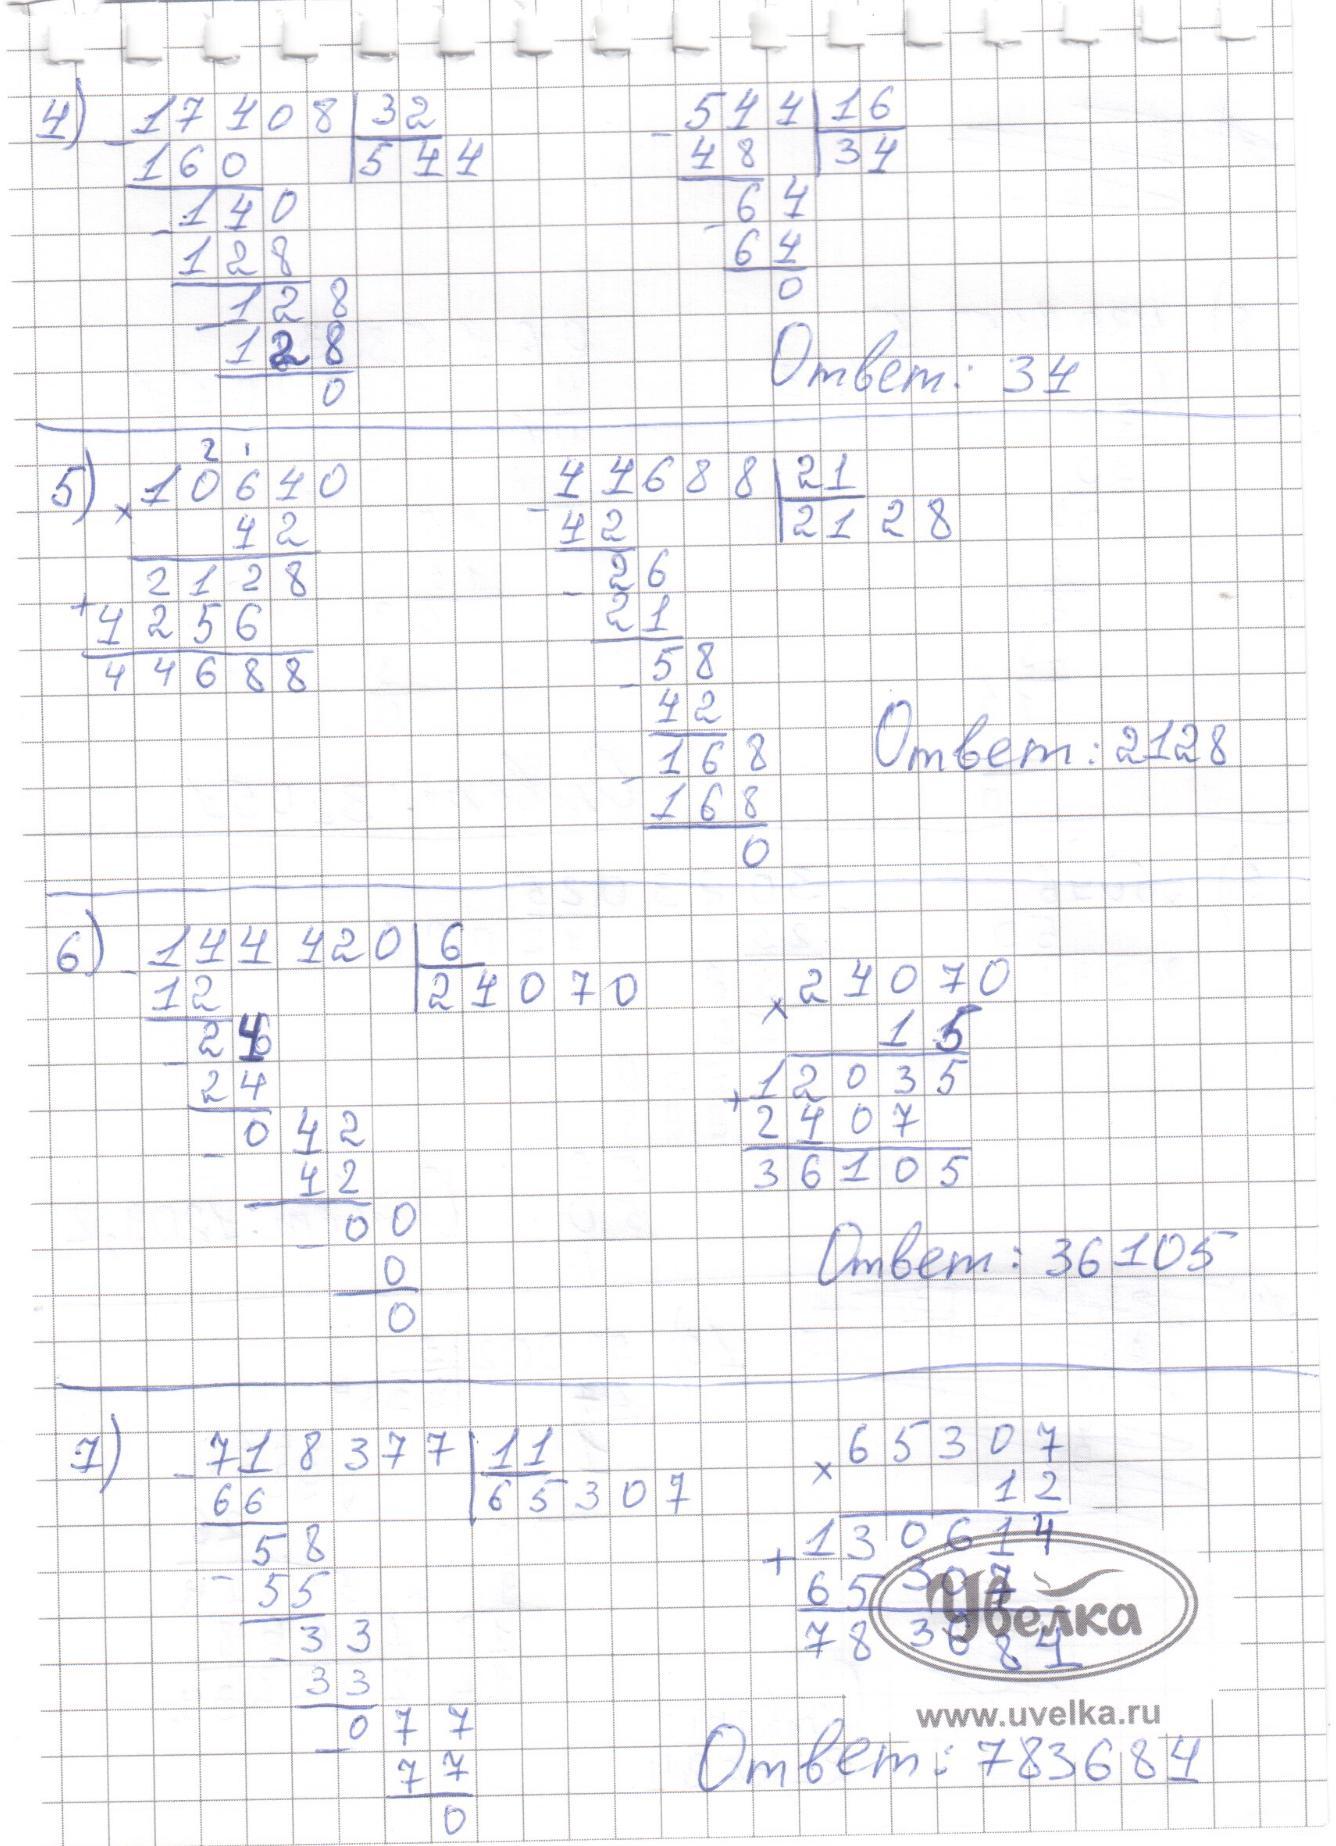 4) - 17408 | 32
160 | 544
- 140
128
- 128
128
0
- 544 | 16
48 | 34
- 64
64
0
Ответ: 34
2 1
5) × 10640
42
2128
+ 4256
44688
- 44688 | 21
42 | 2128
- 26
21
- 58
42
- 168
168
0
Ответ: 2128
6) - 144420 | 6
12 | 24070
- 24
24
- 042
42
- 00
0
0
× 24070
15
12035
+ 2407
36105
Ответ: 36105
7) - 718377 | 11
66 | 65307
- 58
55
- 33
33
- 077
77
0
× 65307
12
130614
+ 65307
783684
Увелка
www.uvelka.ru
Ответ: 783684